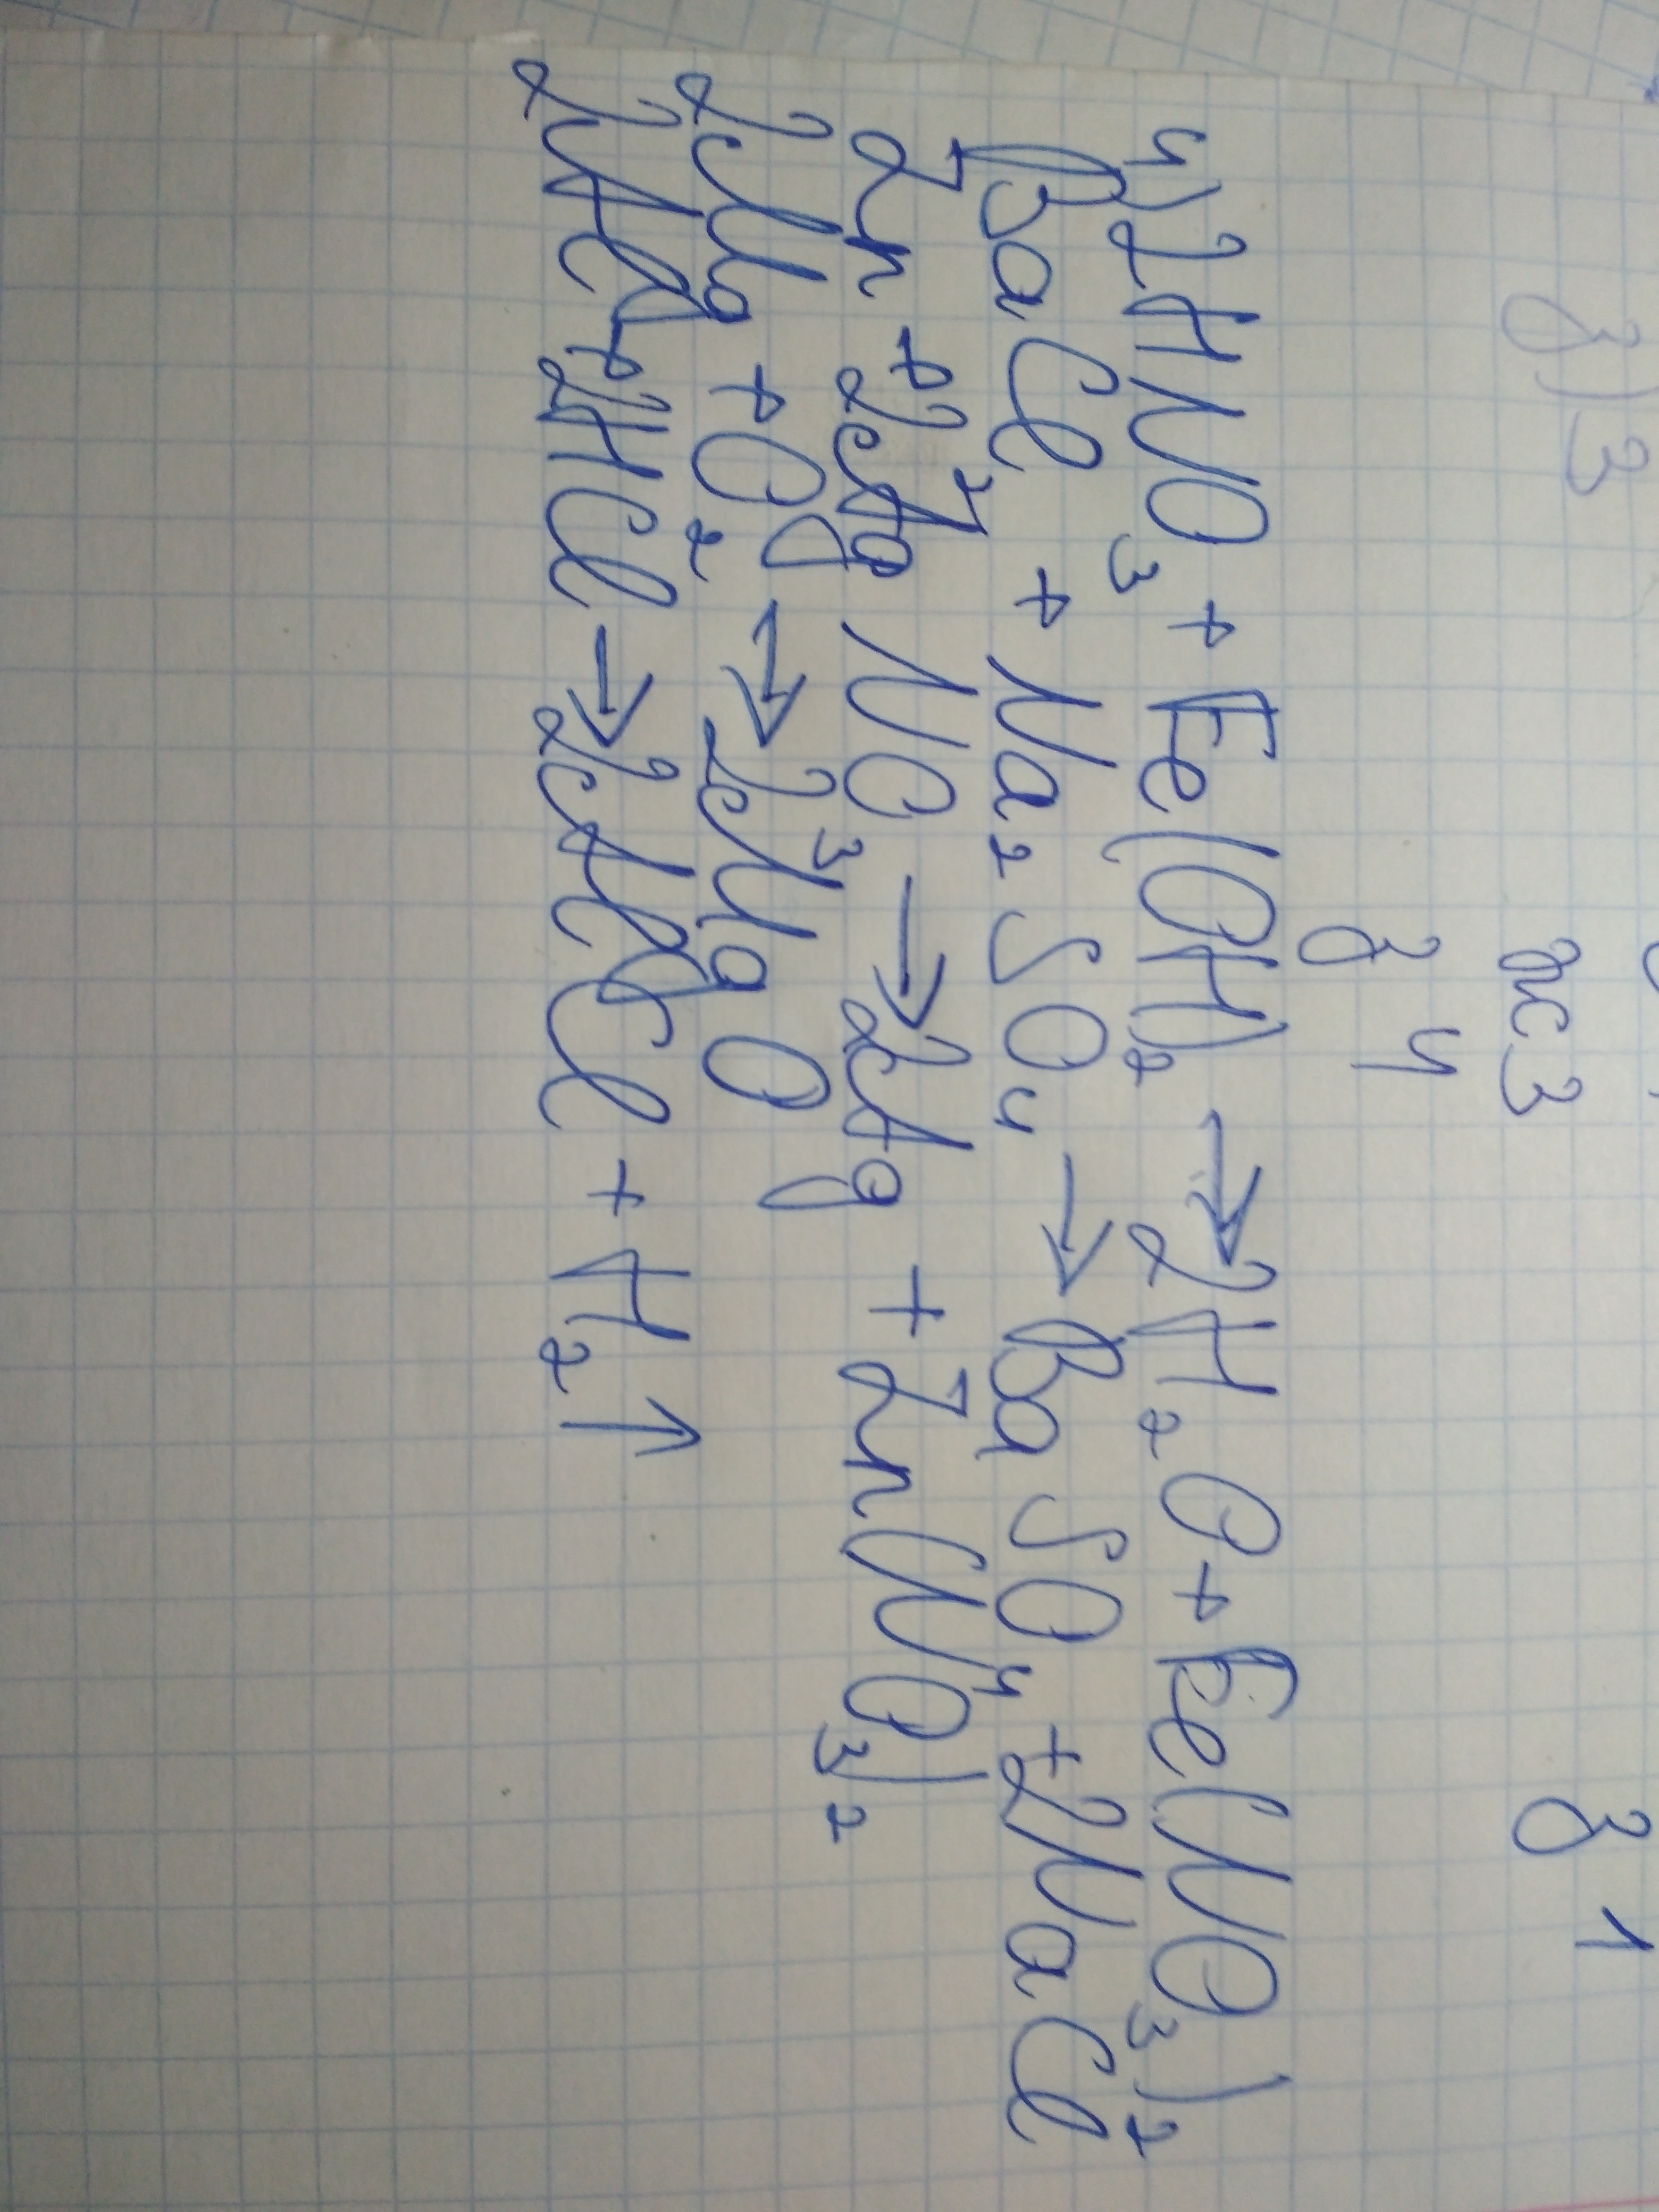 4) 2HNO₃ + Fe(OH)₂ → 2H₂O + Fe(NO₃)₂
BaCl₂ + Na₂SO₄ → BaSO₄ + 2NaCl
Zn + 2AgNO₃ → 2Ag + Zn(NO₃)₂
2Mg + O₂ → 2MgO
2K + 2HCl → 2KCl + H₂↑